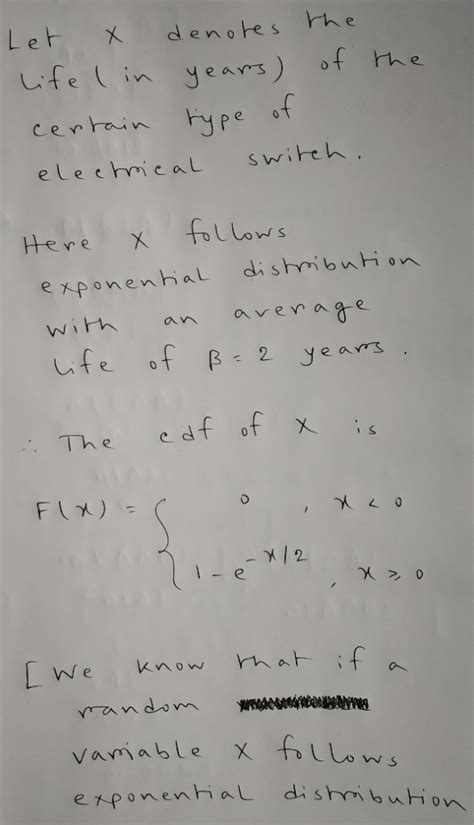 Let X denotes the
life (in years) of the
certain type of
electrical switch.
Here X follows
exponential distribution
with an average
life of β = 2 years.
∴ The cdf of X is
F(x) = { 0 , x < 0
1 - e^{-x/2} , x ≥ 0
[We know that if a
random
variable X follows
exponential distribution